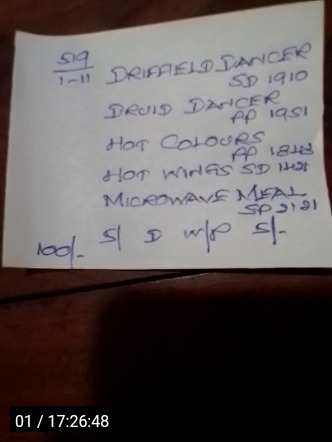 519
1-11
DRIFFIELD DANCER
SD 1910
DRUID DANCER
PP 1951
HOT COLOURS
PP 1843
HOT WINGS SD 1421
MICROWAVE MEAL
SP 2121
100/- S/ D W/P S/-
01 / 17:26:48